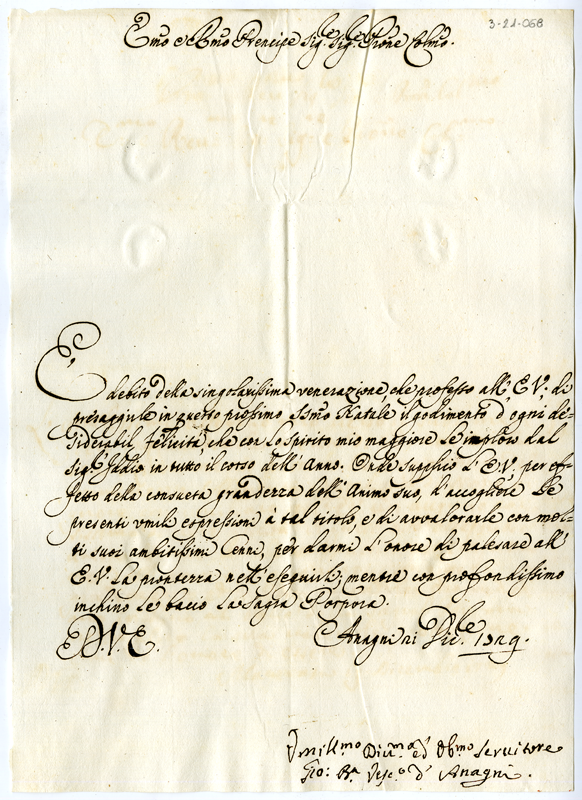 3-21-068
Emo e Rmo Prencipe Sig.re Sig.re Prone Colmo.
E' debito della singolarissima venerazione, che professo all' E.V., di
presaggirle in questo prossimo SSmo Natale il godimento d' ogni de=
siderabil felicità, che con lo spirito mio maggiore le imploro dal
Sig.re Iddio in tutto il corso dell' Anno. Onde supplico L' E.V. per ef=
fetto della consueta grandezza dell' Animo suo, d' accogliere le
presenti umili espressioni à tal titolo, e di avvalorarle con mol=
ti suoi ambitissimi Cenni, per darmi L' onore di palesare all'
E.V. La prontezza nell' eseguirli; mentre con proffondissimo
inchino le bacio La Sagra Porpora.
Di V. E. Anagni Dic.le 1729.
Umill.mo Diu.mo ed Obmo Servitore
Gio: Ba Vesc.o d' Anagni